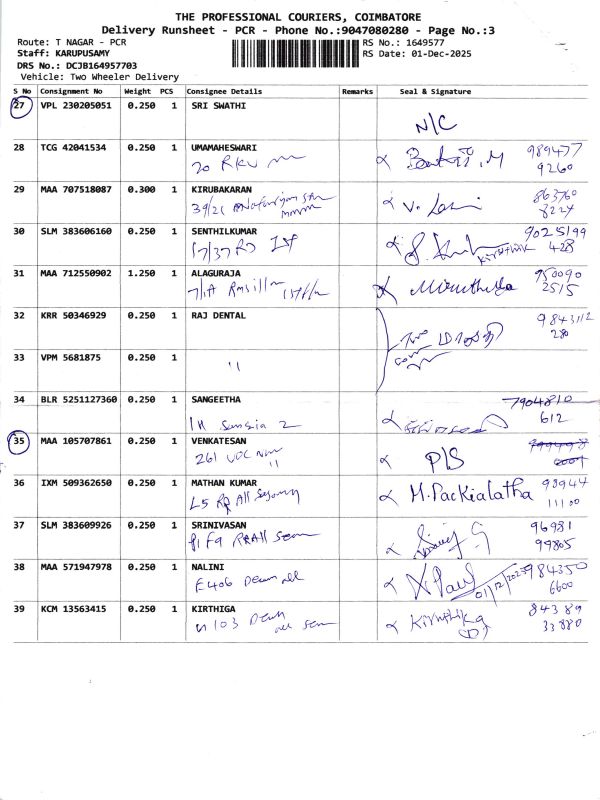 THE PROFESSIONAL COURIERS, COIMBATORE
Delivery Runsheet - PCR - Phone No.:9047080280 - Page No.:3
Route: T NAGAR - PCR
Staff: KARUPUSAMY
DRS No.: DCJB164957703
Vehicle: Two Wheeler Delivery
RS No.: 1649577
RS Date: 01-Dec-2025
S No Consignment No Weight PCS Consignee Details Remarks Seal & Signature
27 VPL 230205051 0.250 1 SRI SWATHI
N/C
28 TCG 42041534 0.250 1 UMAMAHESWARI
20 RKV
989477
9260
29 MAA 707518087 0.300 1 KIRUBAKARAN
39/21
863760
8224
30 SLM 383606160 0.250 1 SENTHILKUMAR
17/37
Kirthik
9025199
428
31 MAA 712550902 1.250 1 ALAGURAJA
7/1A
950090
2515
32 KRR 50346929 0.250 1 RAJ DENTAL
9843112
280
33 VPM 5681875 0.250 1
"
34 BLR 5251127360 0.250 1 SANGEETHA
7904810
612
35 MAA 105707861 0.250 1 VENKATESAN
261 VOC
P/S
36 IXM 509362650 0.250 1 MATHAN KUMAR
L5
M. Packialatha
98944
11100
37 SLM 383609926 0.250 1 SRINIVASAN
F9
96981
99805
38 MAA 571947978 0.250 1 NALINI
E406
01/12/2025
984350
6600
39 KCM 13563415 0.250 1 KIRTHIGA
103
Kiruthika
84389
33880